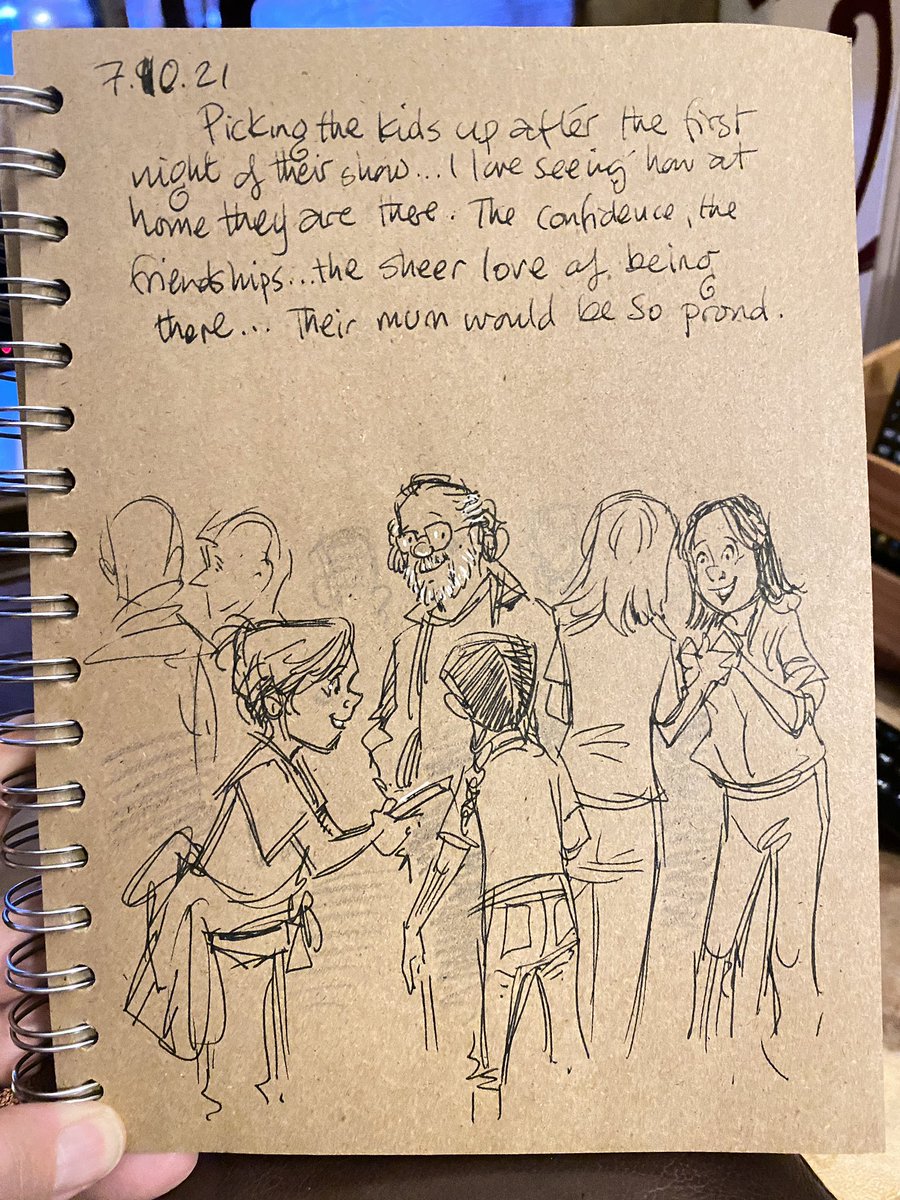 7.10.21
Picking the kids up after the first
night of their show... I love seeing how at
home they are there. The confidence, the
friendships... the sheer love of being
there... Their mum would be so proud.